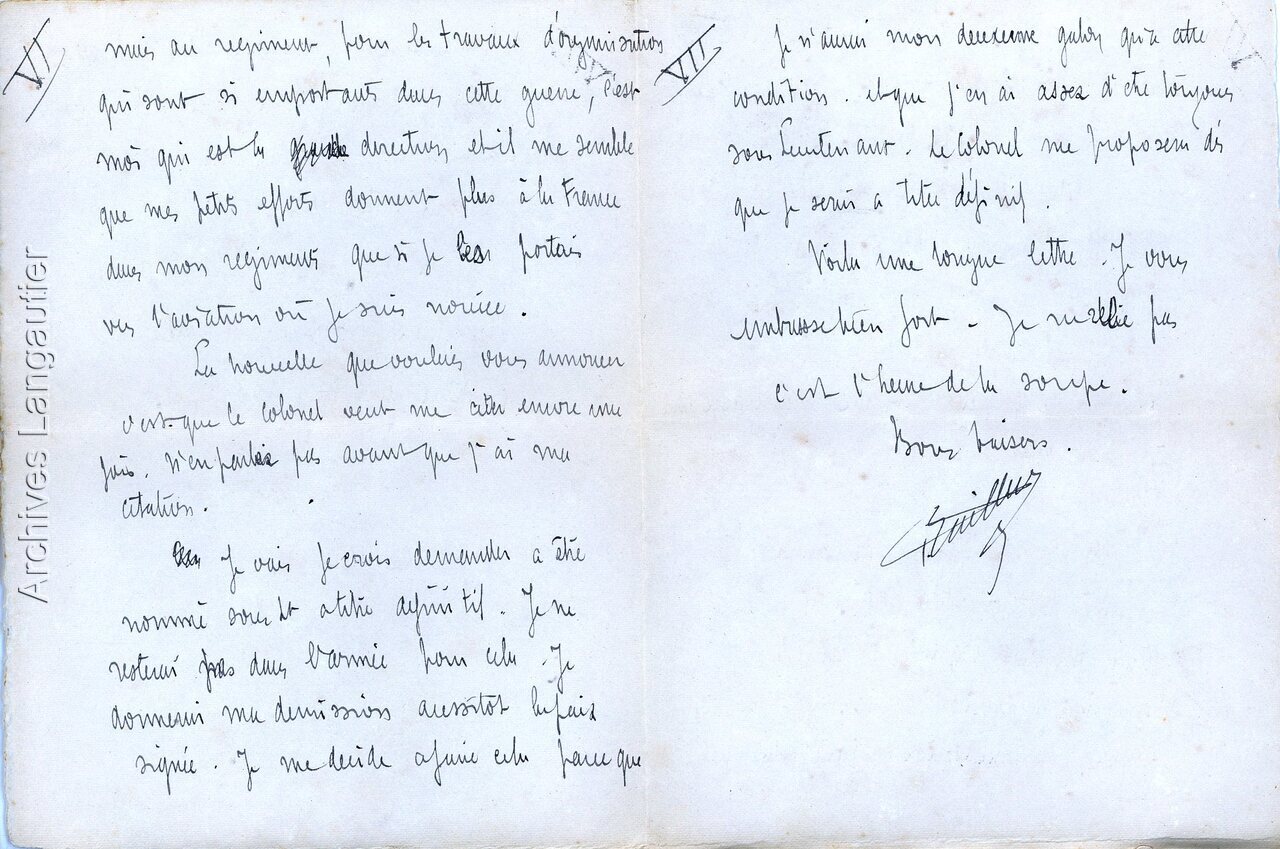 VI
mais au regiment, pour les travaux d'organisation
qui sont si importants dans cette guerre, c'est
moi qui est la direction et il me semble
que mes petits efforts donnent plus à la France
dans mon regiment que si je les portais
vers l'aviation où je suis novice.
La nouvelle que voulais vous annoncer
c'est que le colonel veut me citer encore une
fois. N'en parlez pas avant que j'ai ma
citation.
Je vais je crois demander a être
nommé sous Lt a titre définitif. Je ne
resterai pas dans l'armée pour cela. Je
donnerai ma demission aussitôt la paix
signée. Je me decide a faire cela parce que
VII
Je n'aurai mon deuxieme galon qu'a cette
condition. et que j'en ai assez d'être toujours
sous Lieutenant. Le Colonel me proposera dès
que je serai a titre définif.
Voila une longue lettre. Je vous
embrasse bien fort. Je me relie pas
c'est l'heure de la soupe.
Bons baisers.
Archives Langautier